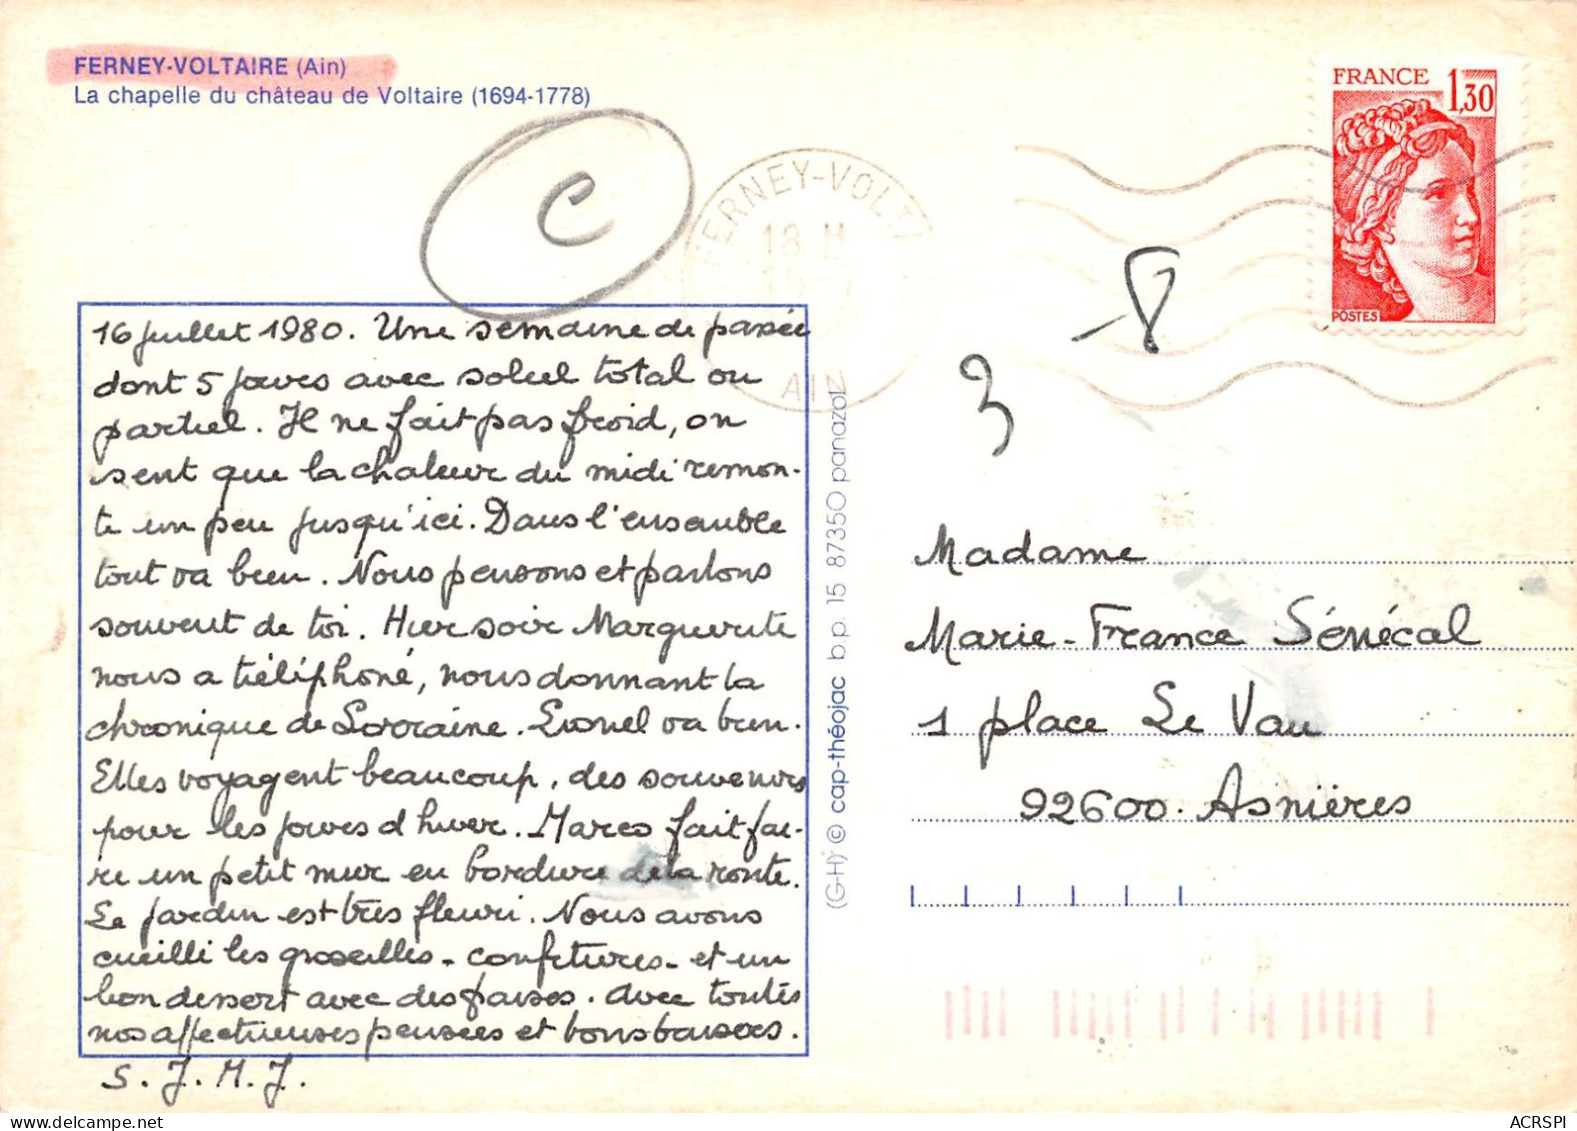 FERNEY-VOLTAIRE (Ain)
La chapelle du château de Voltaire (1694-1778)
C
FERNEY-VOLT
18 H
AIN
FRANCE 1,30
POSTES
8
3
16 juillet 1980. Une semaine de passée
dont 5 jours avec soleil total ou
partiel. Il ne fait pas froid, on
sent que la chaleur du midi remon-
te un peu jusqu'ici. Dans l'ensemble
tout va bien. Nous pensons et parlons
souvent de toi. Hier soir Marguerite
nous a téléphoné, nous donnant la
chronique de Lorraine. Lionel va bien.
Elles voyagent beaucoup, des souvenirs
pour les jours d'hiver. Marco fait fai-
re un petit mur en bordure de la route.
Le jardin est très fleuri. Nous avons
cueilli les groseilles - confitures - et un
bon dessert avec des fraises. Avec toutes
nos affectueuses pensées et bons baisers.
S. J. M. J.
(G-H) © cap-théojac b.p. 15 87350 panazol
Madame
Marie-France Sénécal
1 place Le Vau
92600. Asnières
ACRSPI